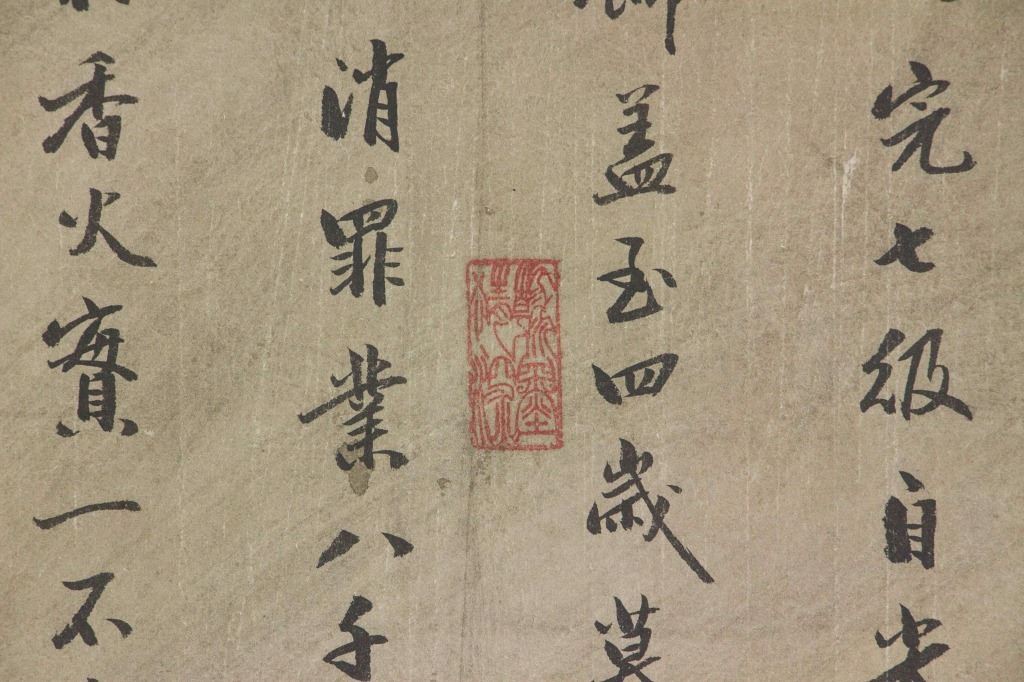 完七級自光
蓋至四歲莫
消罪業八千
香火實一不